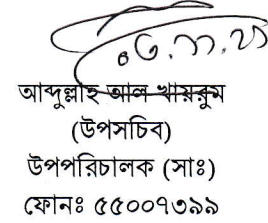 ০৬.১১.২১
আব্দুল্লাহ আল খায়রুম
(উপসচিব)
উপপরিচালক (সাঃ)
ফোনঃ ৫৫০০৭৩৯৯